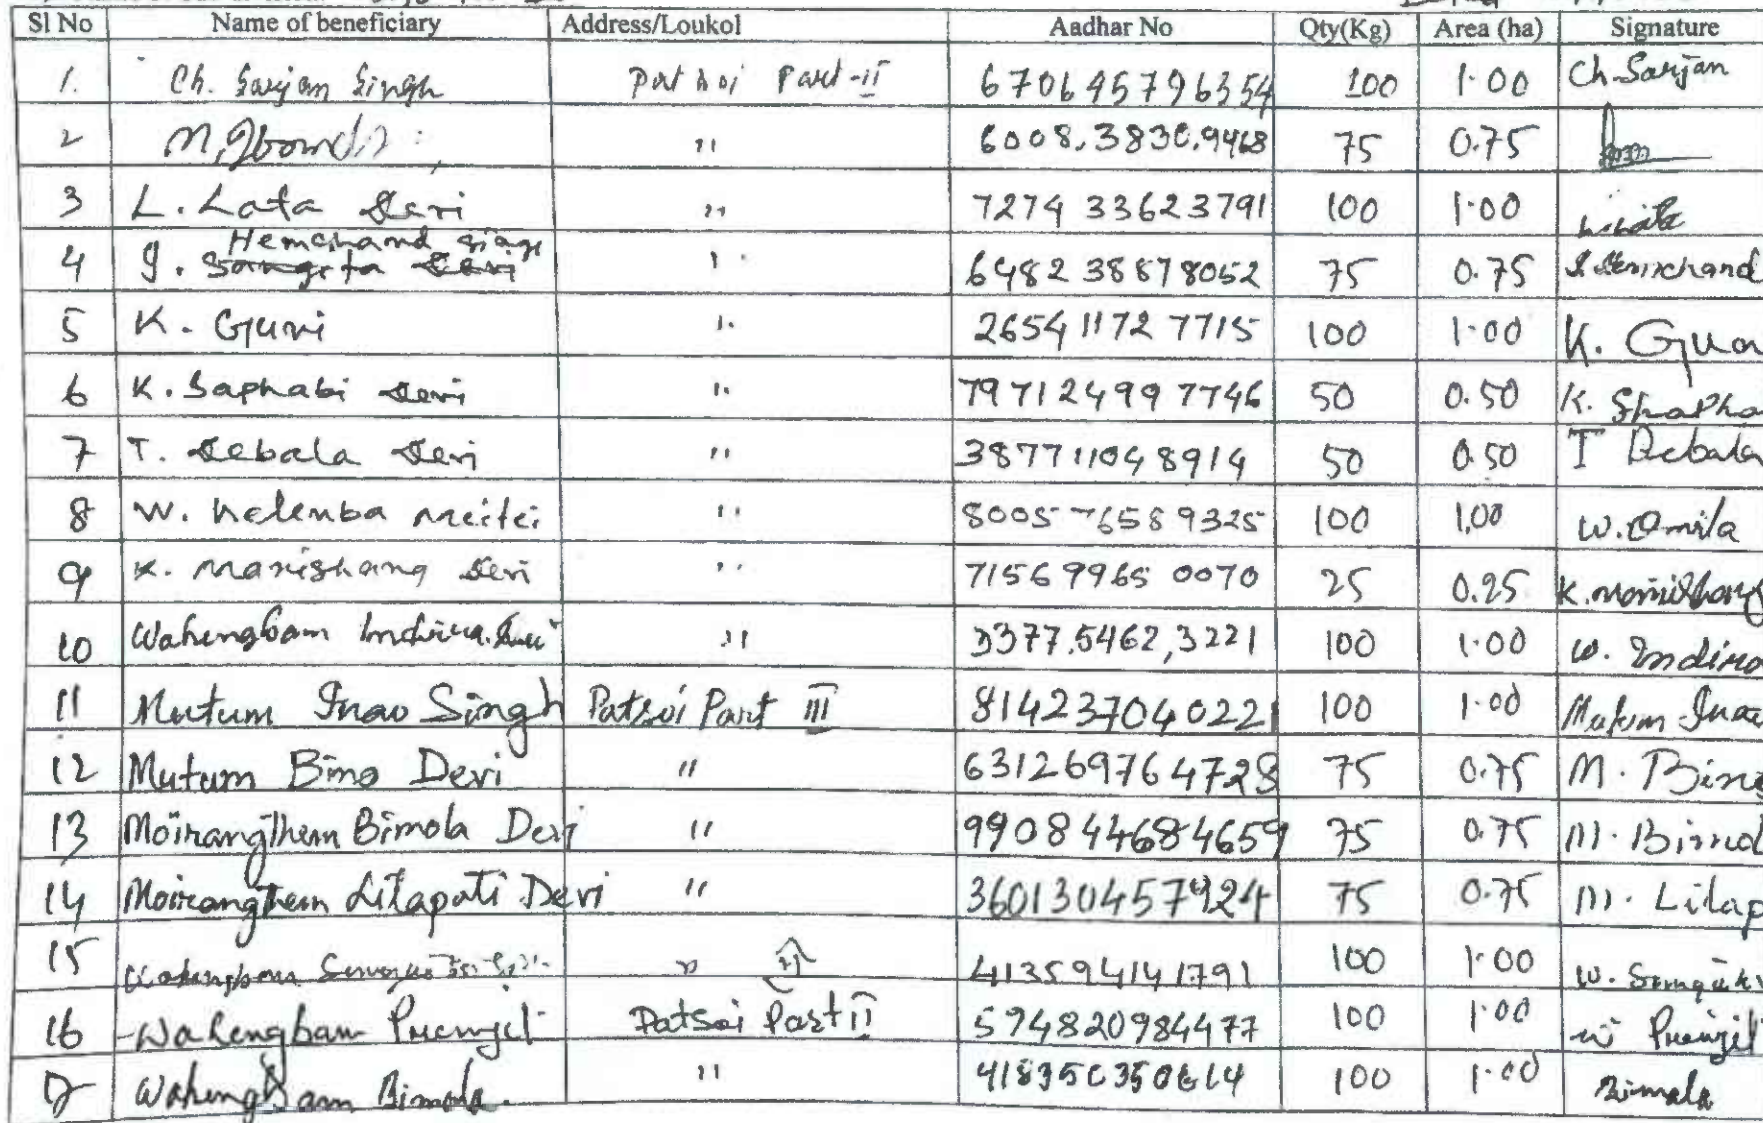 Sl No Name of beneficiary Address/Loukol Aadhar No Qty(Kg) Area (ha) Signature
1. Ch. Sarjan Singh Patsoi Part-II 670645796354 100 1.00 Ch. Sarjan
2 " 6008.3830.9468 75 0.75
3 L. Lata Devi " 7274 33623791 100 1.00
Hemchand Singh
4 " 6482 38878052 75 0.75
5 K. Guni " 26541172 7715 100 1.00
6 K. Saphabi Devi " 797124997746 50 0.50
7 T. Debala Devi " 387711048914 50 0.50 T Debala
8 W. Meitei " 8005 76589325 100 1.00
9 K. Manishang Devi " 71569965 0070 25 0.25
10 Wahengbam Indira Devi " 3377.5462,3221 100 1.00 W. Indira
11 Mutum Inao Singh Patsoi Part III 814237040221 100 1.00 Mutum Inao
12 Mutum Bino Devi " 631269764728 75 0.75 M. Bino
13 Moirangthem Bimola Devi " 990844684659 75 0.75 M. Bimol
14 Moirangthem Lilapati Devi " 360130457924 75 0.75 M. Lilap
15 Wahengbam " 413594141791 100 1.00
16 Wahengbam Premjit Patsoi Part II 594820984477 100 1.00 W Premjit
17 Wahengbam Bimola " 100 1.00 Bimala